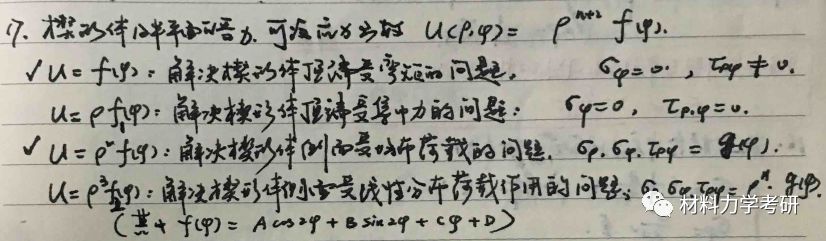 17. 楔形体及半平面问题受力. 可设应力函数 U(ρ,φ) = ρⁿ⁺² f(φ).
√ U = f(φ): 解决楔形体顶端受弯矩的问题. σφ=0. , τρφ ≠ 0.
U = ρf₁(φ): 解决楔形体顶端受集中力的问题: σφ=0, τρ,φ=0.
√ U = ρ²f(φ): 解决楔形体侧面受均布荷载的问题. σρ.σφ.τρφ = g(φ).
U = ρ³f₂(φ): 解决楔形体侧面受线性分布荷载作用的问题; σρ σφ τρφ = ρⁿ·g(φ).
(其中 f(φ) = A cos2φ + B sin2φ + Cφ + D)
材料力学考研